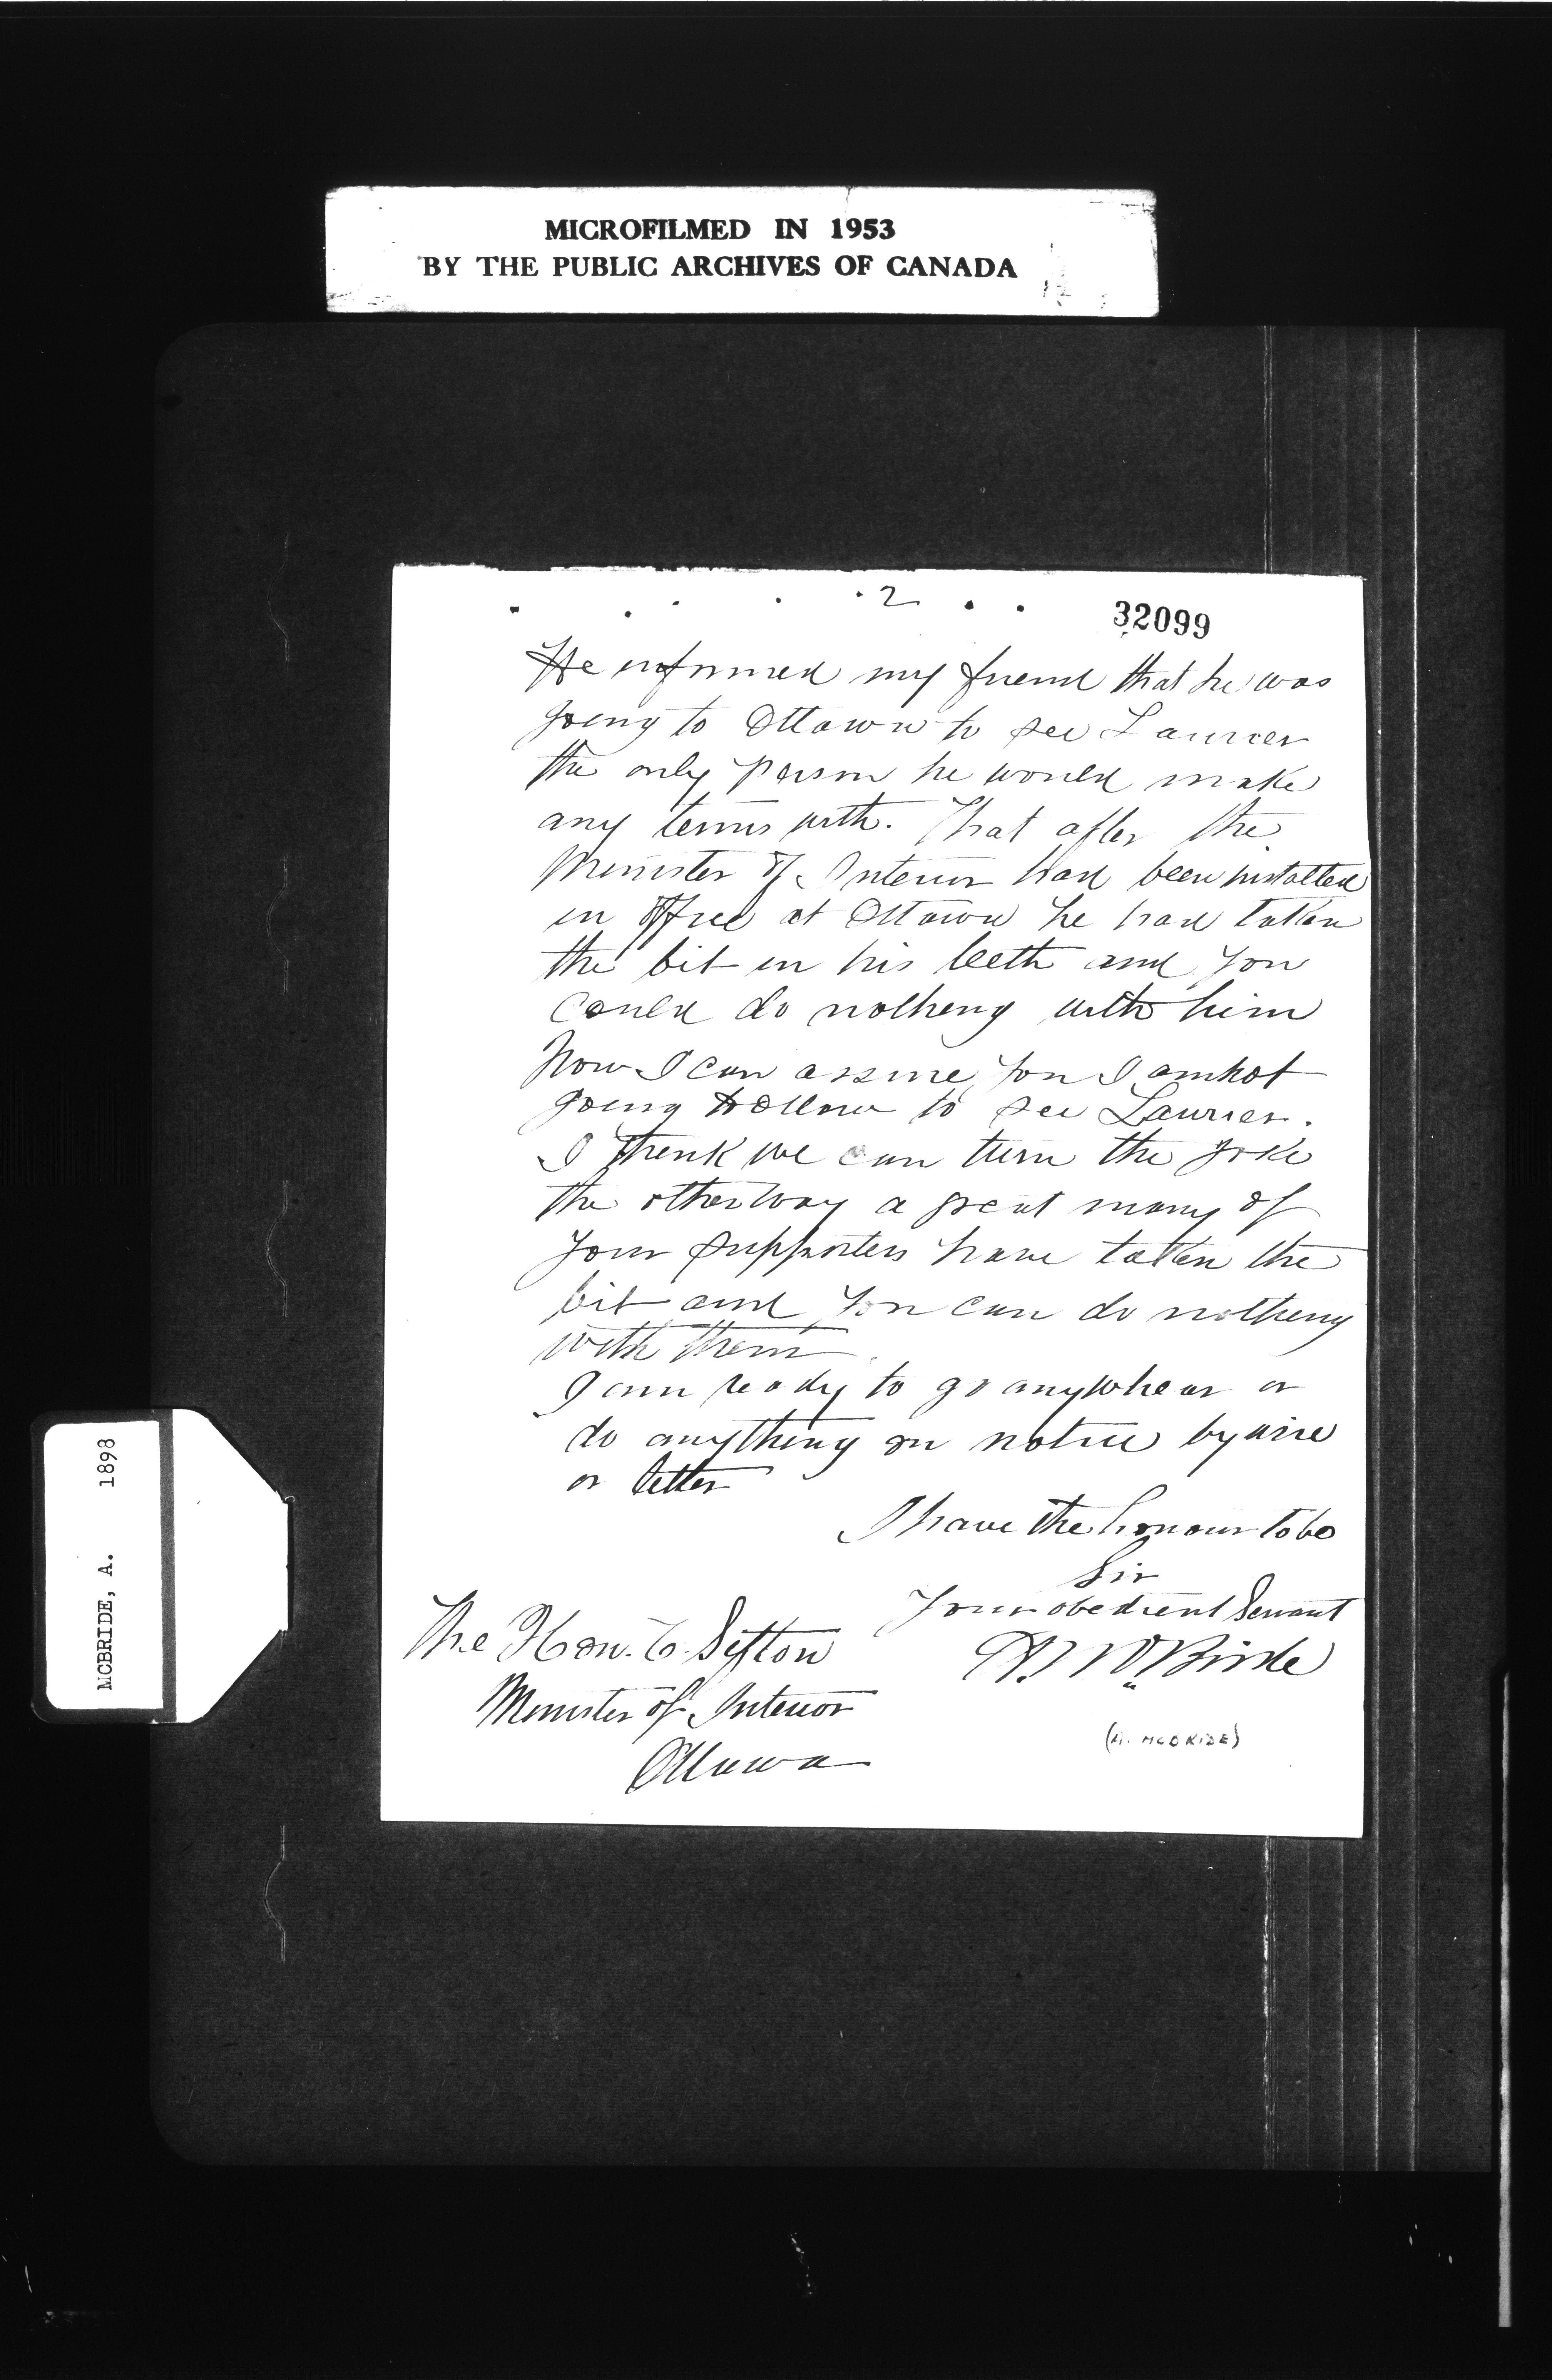 MICROFILMED IN 1953
BY THE PUBLIC ARCHIVES OF CANADA
2
32099
He informed my friend that he was
going to Ottawa to see Laurier
the only person he would make
any terms with. That after the
Minister of Interior had been installed
in office at Ottawa he had taken
the bit in his teeth and you
could do nothing with him
Now I can assure you I am not
going to Ottawa to see Laurier.
I think we can turn the joke
the other way a great many of
your supporters have taken the
bit and you can do nothing
with them
I am ready to go anywhear or
do anything on notice by wire
or letter
I have the honour to be
Sir
Your obedient Servant
A. McBride
(A. MCBRIDE)
The Hon. C. Sifton
Minister of Interior
Ottawa
MCBRIDE, A. 1898